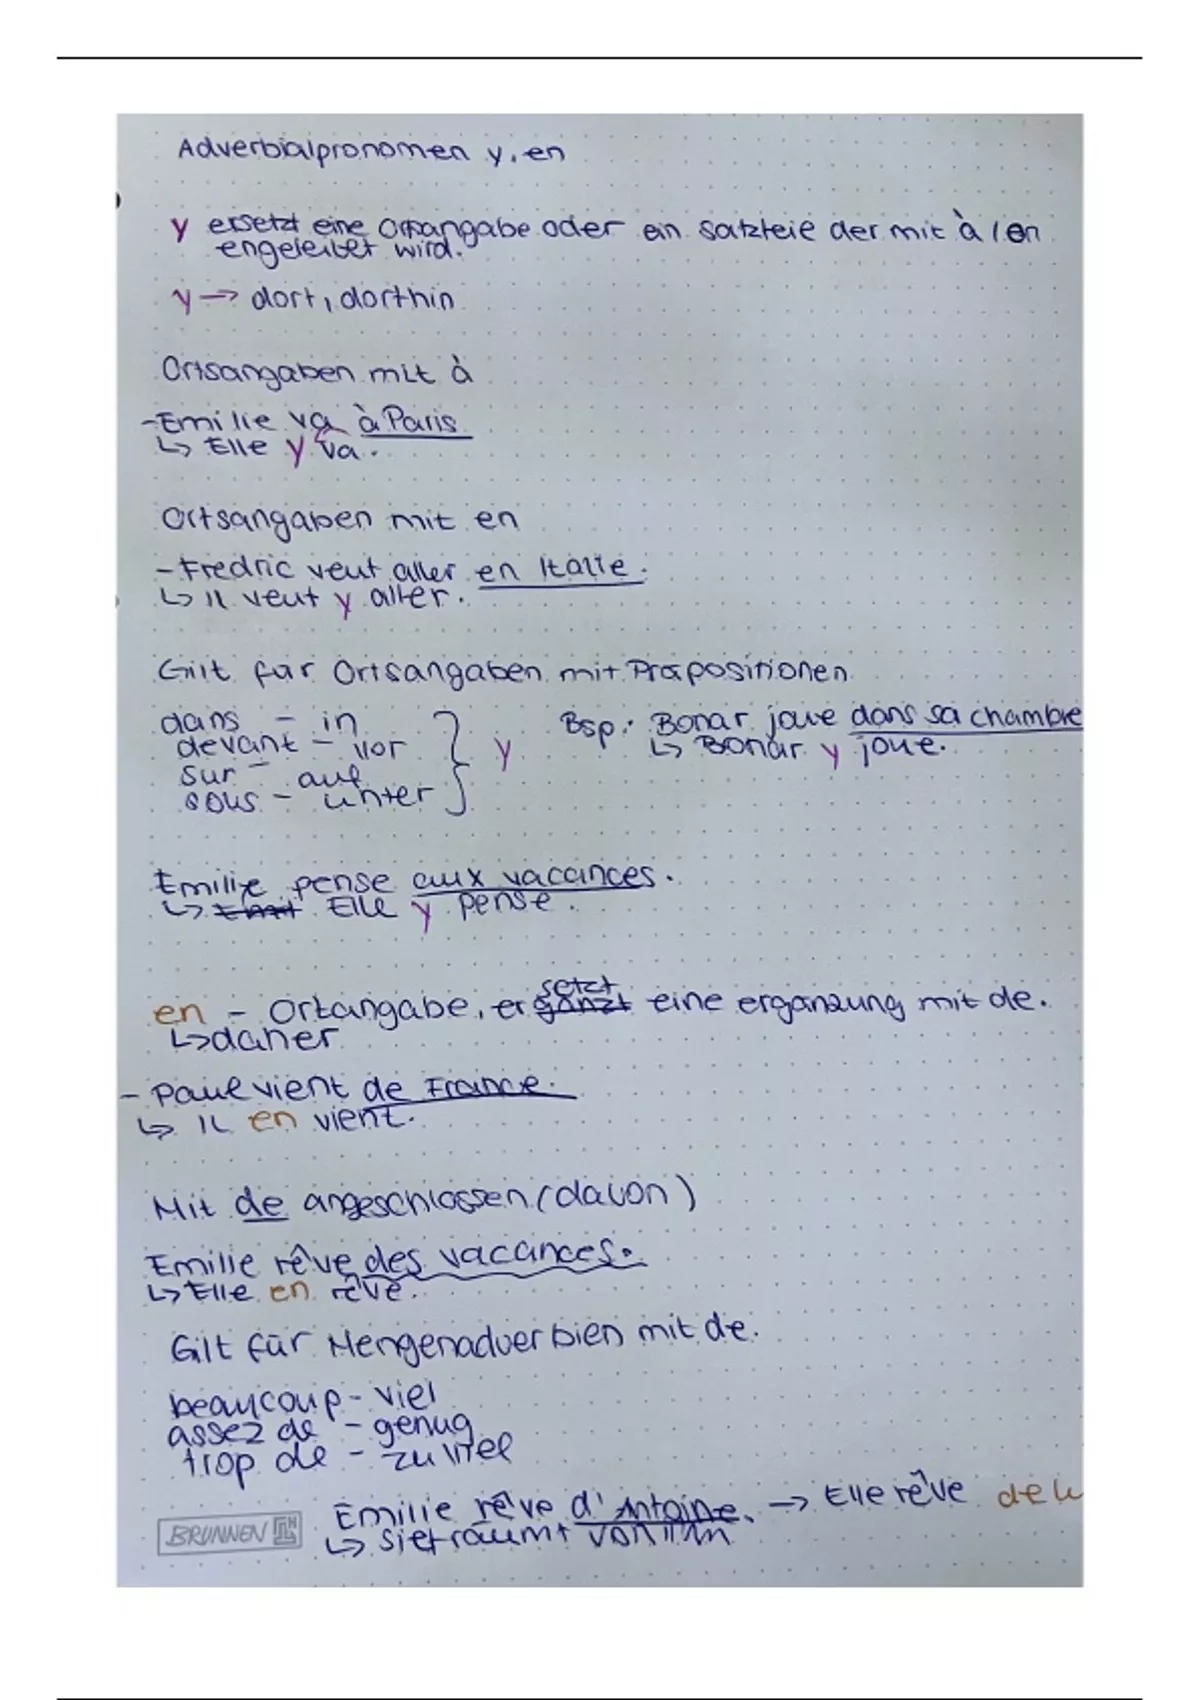 Adverbialpronomen y, en
y ersetzt eine Ortsangabe oder ein satzteie der mit à / en
engeleibet wird.
y → dort, dorthin
Ortsangaben mit à
-Emilie va à Paris
↳ Elle y va.
Ortsangaben mit en
- Fredric veut aller en Italie.
↳ il veut y aller.
Gilt für Ortsangaben mit Präpositionen
dans - in
devant - vor
sur - auf
sous - unter
y
Bsp: Bonar joue dans sa chambre
↳ Bonar y joue.
Emilie pense aux vacances.
↳ Elle y pense.
en - Ortangabe, ersetzt eine ergänzung mit de.
↳ daher
- Paul vient de France.
↳ il en vient.
Mit de angeschlossen (davon)
Emilie rêve des vacances.
↳ Elle en rêve.
Gilt für Mengenadverbien mit de.
beaucoup - viel
assez de - genug
trop de - zu viel
Emilie rêve d'Antoine. → Elle rêve de lu
↳ sie träumt von ihm
BRUNNEN